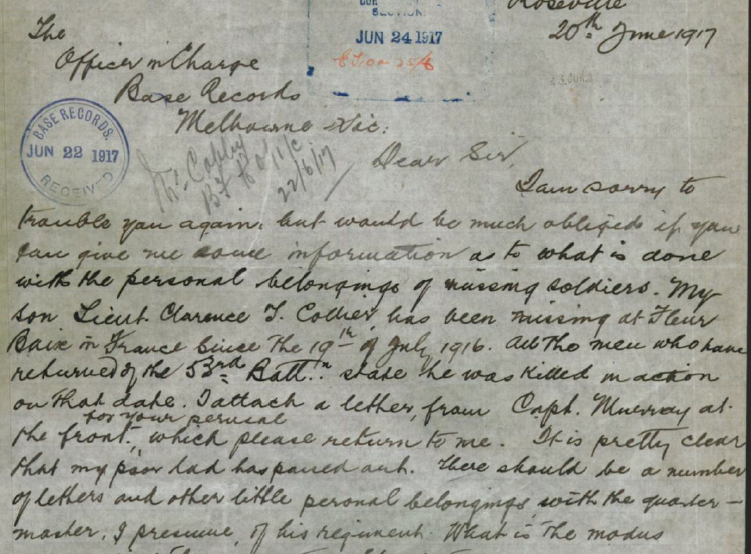 Roseville
SECTION.
JUN 24 1917
20th June 1917
The
Officer in Charge
Base Records
Melbourne Vic:
BASE RECORDS.
JUN 22 1917
RECEIVED
22/6/17
Dear Sir,
I am sorry to
trouble you again, but would be much obliged if you
can give me some information as to what is done
with the personal belongings of missing soldiers. My
son Lieut. Clarence T. Collier, has been missing at Fleur
Baix in France since the 19th of July, 1916. All the men who have
returned of the 53rd Battn. state he was killed in action
on that date. I attach a letter, from Capt. Murray at
for your perusal
the front, which please return to me. It is pretty clear
that my poor lad has passed out. There should be a number
of letters and other little personal belongings with the quarter-
master, I presume, of his regiment. What is the modus